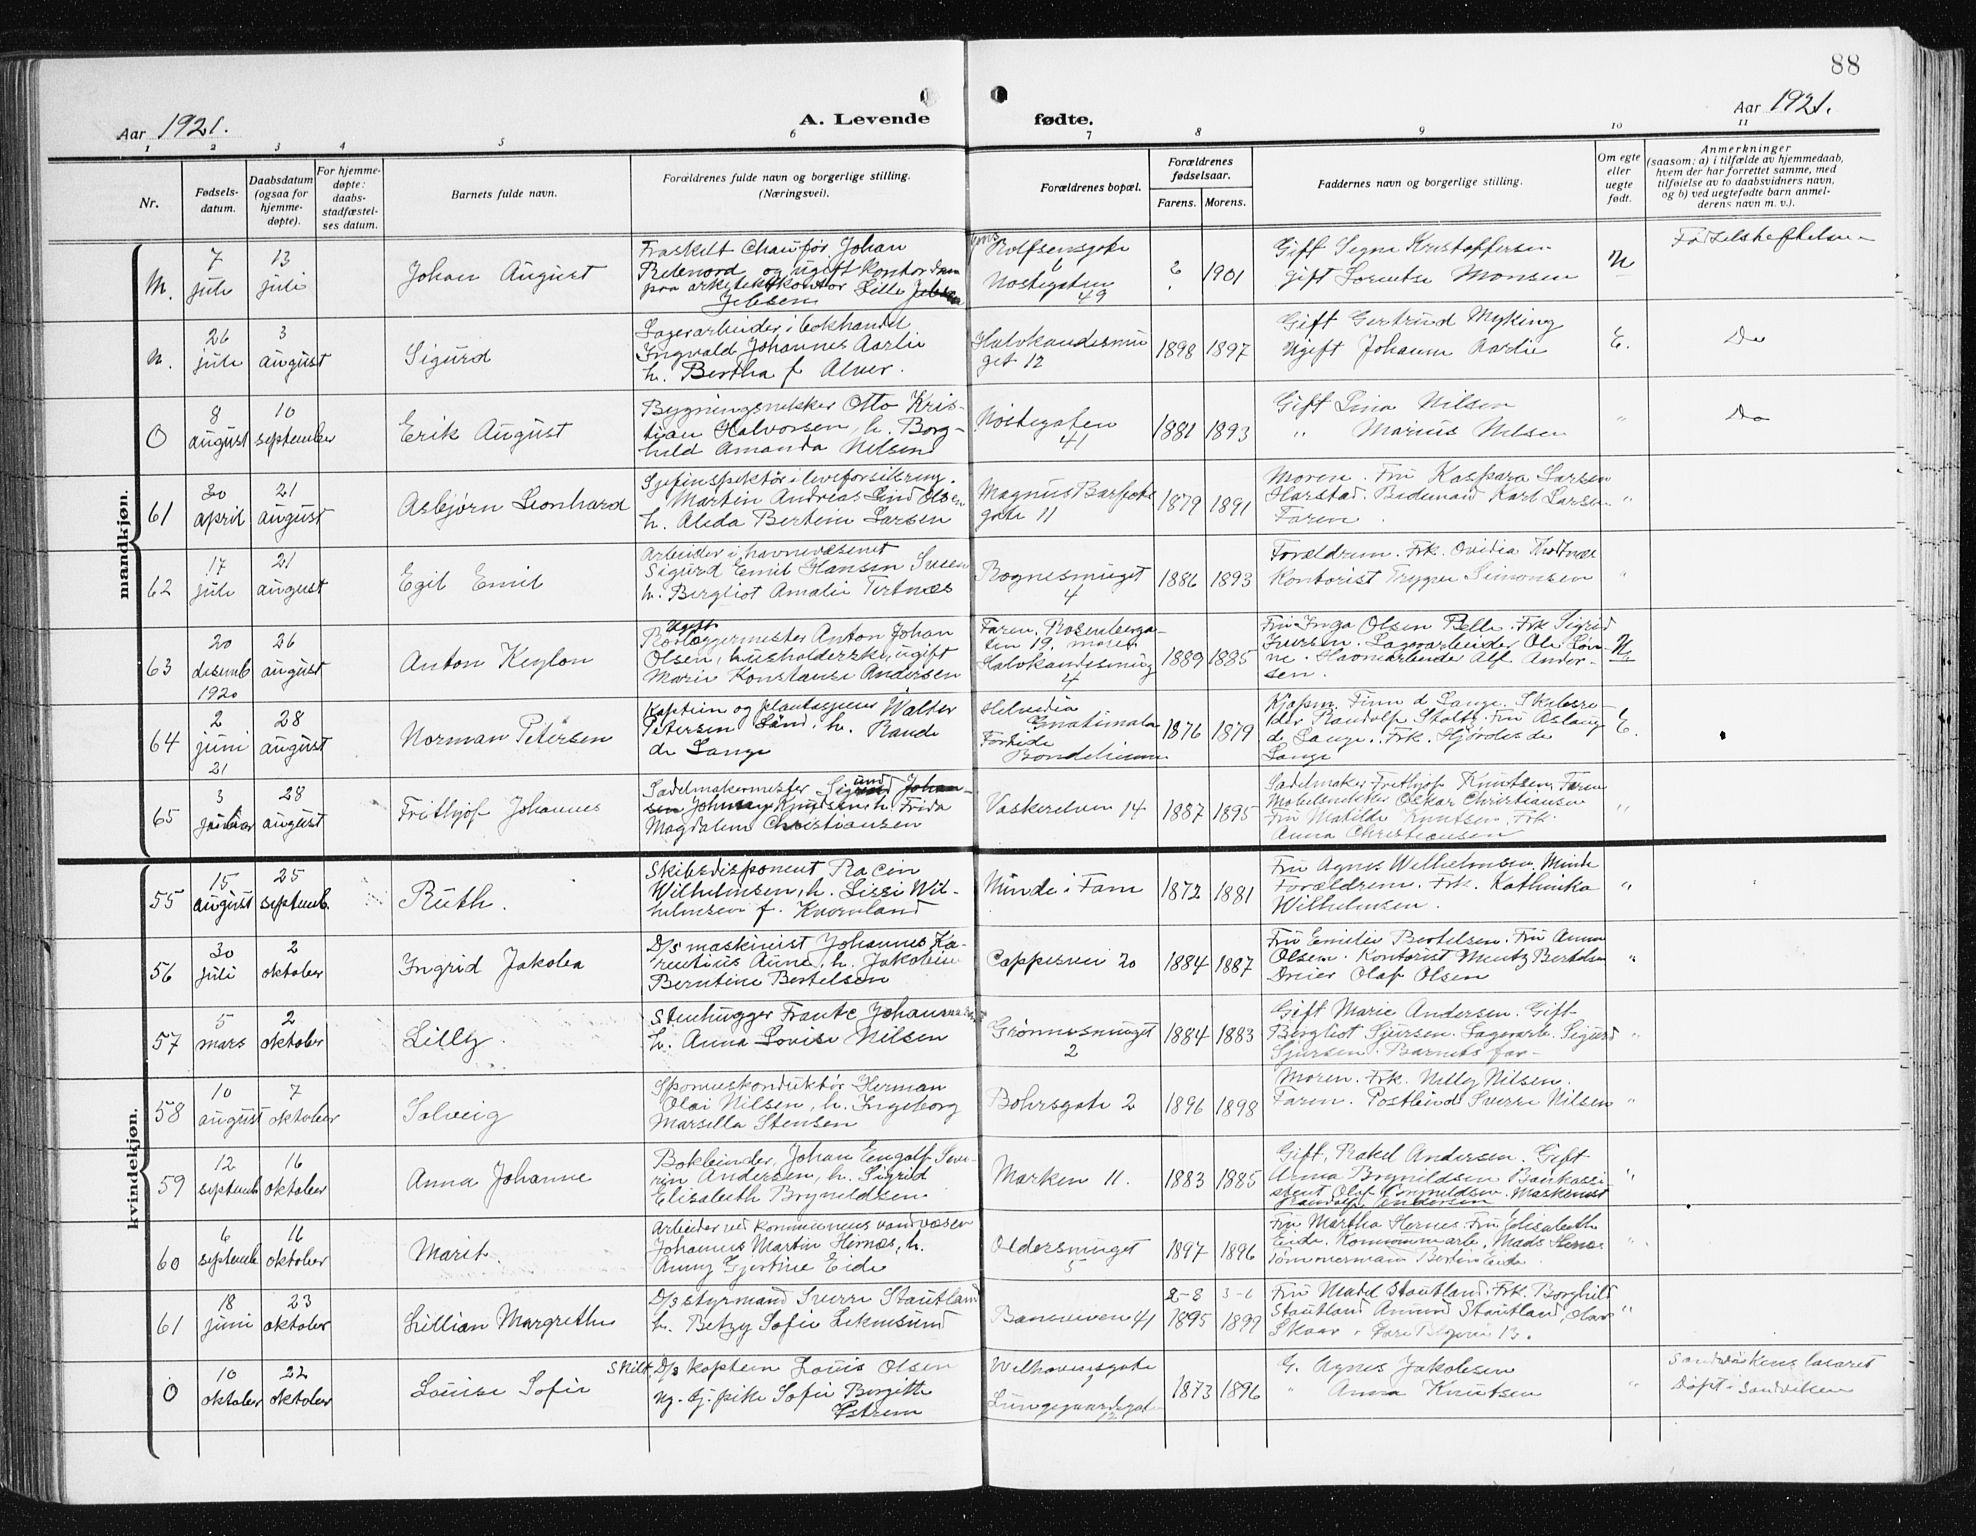 88
Aar 1921.
A. Levende
fødte.
Aar 1921.
1 2 3 4 5 6 7 8 9 10 11
Nr.
Fødsels-
datum.
Daabsdatum
(ogsaa for
hjemme-
døpte).
For hjemme-
døpte:
daabs-
stadfæstel-
ses datum.
Barnets fulde navn.
Forældrenes fulde navn og borgerlige stilling.
(Næringsvei).
Forældrenes bopæl.
Forældrenes
fødselsaar.
Farens. Morens.
Faddernes navn og borgerlige stilling.
Om egte
eller
uegte
født.
Anmerkninger
(saasom: a) i tilfælde av hjemmedaab,
hvem der har forrettet samme, med
tilføielse av to daabsvidners navn,
og b) ved uegtefødte barn anmel-
derens navn m. v.).
mandkjøn.
N. 7 juli 13 juli
Johan August
Fraskilt Chaufør Johan
og ugift kontordame
paa arkitektkontor Lille
Jebsen
Rolfsensgate
6
Nostegaten
49
? 1901
Gift Signe Kristoffersen
gift Lorentse Monsen
U
Fødselsheftelsen
N. 26 juli 3 august
Sigurd
Lagerarbeider i bokhandel
Ingvald Johannes Aarlie
h. Bertha f. Alver.
Halvkandesmu
get 12
1898 1897
Gift Gertrud Myking
Ugift Johanne Aarlie
E.
Do
O 8 august 10 september
Erik August
Bygningssnekker Otto Kris-
tian Halvorsen, h. Borg-
hild Amanda Nilsen
Nostegaten
41
1881 1893
Gift Lina Nilsen
" Marius Nilsen
"
Do
61 30 april 21 august
Asbjørn Leonhard
Sjefinspektør i livsforsikring.
Martin Andreas Lind Olsen
h. Alida Bertine Larsen
Magnus Barfots
gate 11
1879 1891
Moren. Fru Kaspara Larsen
Harstad. Bademand Karl Larsen
Faren.
"
62 17 juli 21 august
Egil Emil
Arbeider i havnevæsenet
Sigurd Emil Hansen Sveen
h. Bergliot Amalie Tertnæs
Rognesmuget
4
1886 1893
Forældrene. Frk. Ovidia
Kontorist Trygve Simonsen
"
63 20 desemb 1920 26 august
Anton Keylon
Ugift
Rørlæggermester Anton Johan
Olsen, husholderske, ugift
Marie Konstanse Andersen
Faren. Rosenberga-
ten 19. moren
Halvkandesmug
4
1889 1885
Fru Inga Olsen Bell. Frk Sigrid
Iversen. Lagerarbeider Ole Løn-
ne. Havnearbeider Alf Ander-
sen.
U.
64 2 juni 21 28 august
Norman Petersen
Kaptein og plantageeier Walter
Petersen Lund, h. Rande
de Lange
Helvedia
Gnatimala
Fortiden
1876 1879
Kjøpm. Finn d Lange. Skibsre-
der Randolf Stoltz. Fru Aslaug
de Lange. Frk. Hjørdis de
Lange
E.
65 3 januar 28 august
Frithjof Johannes
Sadelmakermester
Knudsen, h. Frida
Magdalene Christiansen
Vaskerelven 14
1887 1895
Sadelmaker Frithjof Knutsen, Faren
Møbelsnekker Oskar Christiansen
Fru Matilde Knutsen. Frk.
Anna Christiansen
"
kvindekjøn.
55 15 august 25 septemb.
Ruth.
Skibsdisponent Racin
Wilhelmsen, h. Lissi Wil-
helmsen f. Knorvland
Minde i Fana
1872 1881
Fru Agnes Wilhelmsen, Minde
Forældrene. Frk. Kathinka
Wilhelmsen.
"
56 30 juli 2 oktober
Ingrid Jakoba
D/s maskinist Johannes Ka-
rentius Aune, h. Jakobine
Berntine Bertelsen
Cappesvei 20
1884 1887
Fru Emilie Bertelsen. Fru Anna
Olsen. Kontorist Mentz Bertelsen
Dreier Olaf Olsen
"
57 5 mars 2 oktober
Lilly.
Stenhugger Frantz Johannessen
h. Anna Lovise Nilsen
Grønnesmuget
2
1884 1883
Gift Marie Andersen. Gift
Bergliot Sjursen. Lagerarb. Sigurd
Sjursen. Barnets far
"
58 10 august 7 oktober
Solveig
Sporveiskonduktør Herman
Olai Nilsen, h. Ingeborg
Marsella Stensen
Bøhrsgate 2
1896 1898
Moren. Frk. Nelly Nilsen.
Faren. Postbud Sverre Nilsen
"
59 12 septemb 16 oktober
Anna Johanne
Bokbinder, Johan Engolf Seve-
rin Andersen, h. Sigrid
Elisabeth Brynildsen
Marken 11.
1883 1885
Gift. Rakel Andersen. Gift
Anna Brynildsen Bankassi
stent Olaf Brynildsen. Maskinist
Randolf Andersen
"
60 6 septemb 16 oktober
Marit.
Arbeider ved kommunens vandvæsen
Johannes Martin Hernes, h.
Anny Gjertine Eide
Oldersmuget
5
1897 1896
Fru Martha Hernes. Fru Elisabeth
Eide. Kommunearb. Mads Hernes
Tømmermand Bertin Eide
"
61 18 juni 23 oktober
Lillian Margrethe
D/s styrmand Sverre Stautland
h. Betzy Sofie Lekmsund
Baneveien 41
2-8 3-6
1895 1899
Fru Madel Stautland. Frk. Borghild
Stautland Amund Stautland, Olav
Skaar.
"
O 10 oktober 22 oktober
Louise Sofie
Skilt. D/s kaptein Louis Olsen
ug. tj. pike Sofie Birgitte
Østrem
Welhavensgate
Lungegaardsgat.
12
1873 1896
G. Agnes Jakobsen
" Anna Knutsen
"
Sandvikens lasaret
Døpt i Sandviken